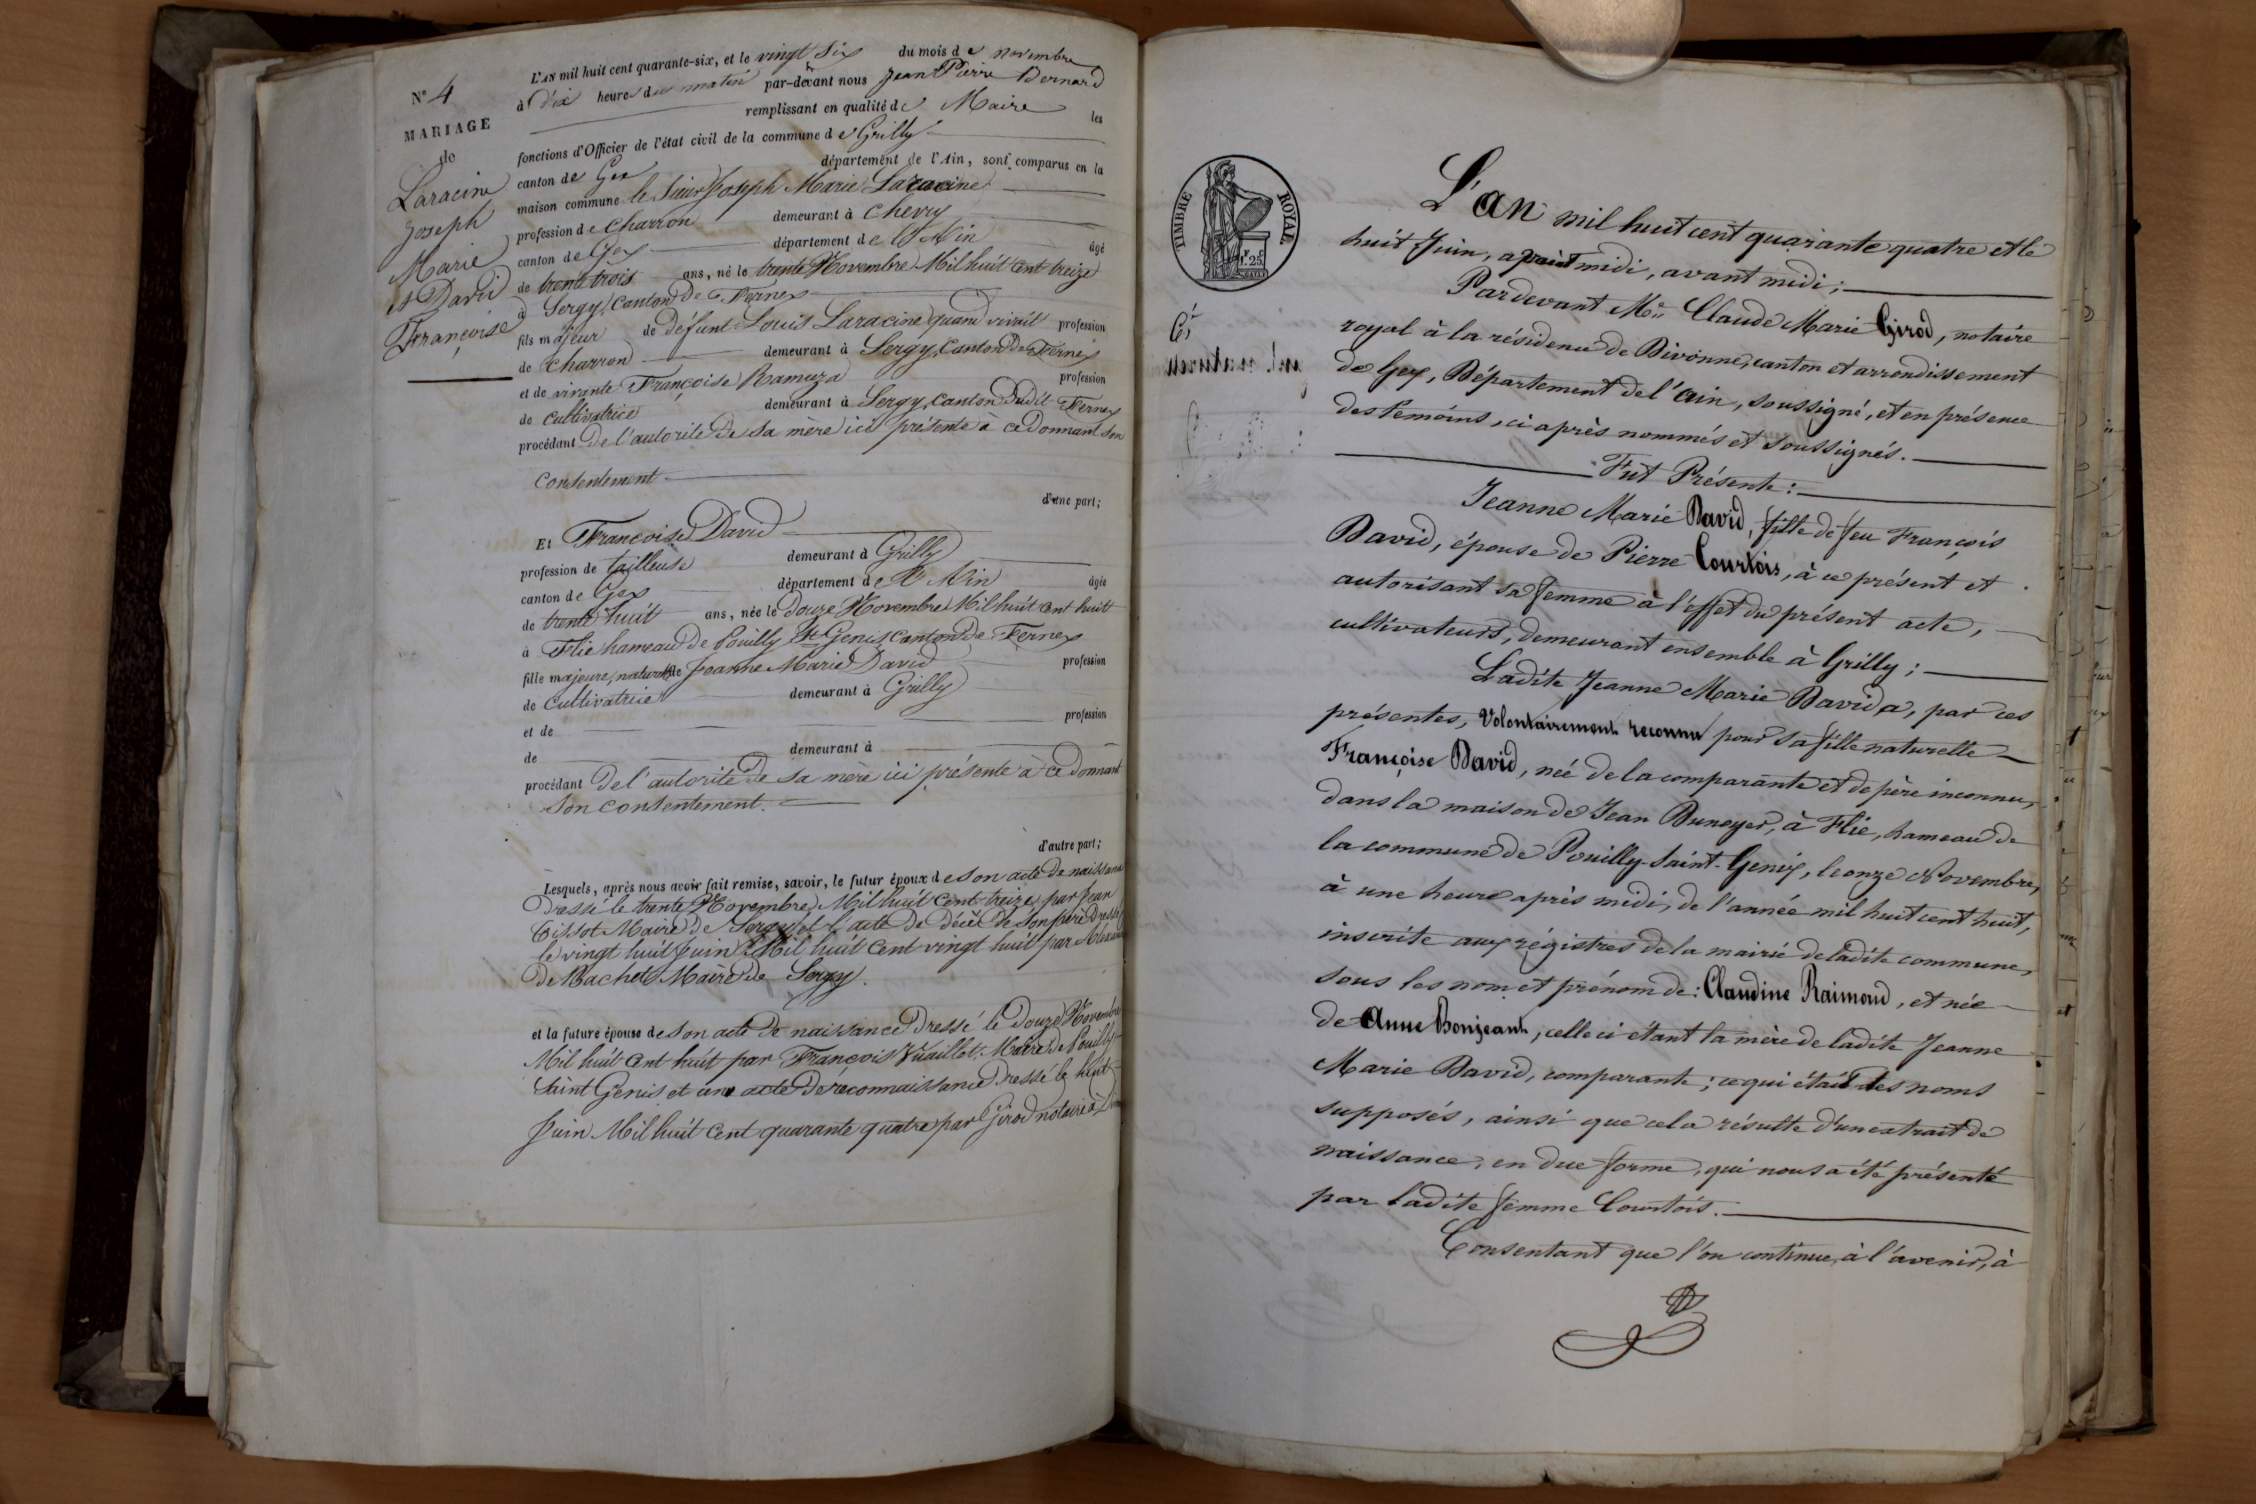 N° 4
MARIAGE
de
Laracine
Joseph
Marie
et David
Françoise
L'AN mil huit cent quarante-six, et le vingt Six du mois de novembre
à Dix heures du matin par-devant nous Jean Pierre Bernard
remplissant en qualité de Maire les
fonctions d'Officier de l'état civil de la commune de Grilly
canton de Gex département de l'Ain, sont comparus en la
maison commune le Sieur Joseph Marie Laracine
profession de Charron demeurant à Chevry
canton de Gex département de l'Ain âgé
de trente trois ans, né le trente Novembre Mil huit Cent treize
à Sergy, Canton De Fernex
fils majeur de défunt Louis Laracine quand vivait profession
de Charron demeurant à Sergy, Canton De Fernex
et de vivante Françoise Ramuza profession
de Cultivatrice demeurant à Sergy, Canton Dudit Fernex
procédant De l'autorité De Sa mère ici présente à ce Donnant Son
Consentement
d'une part;
Et Françoise David
profession de tailleuse demeurant à Grilly
canton de Gex département de l'Ain âgée
de trente huit ans, née le Douze Novembre Mil huit Cent huit
à Flie hameau De Pouilly St Genis Canton De Fernex
fille majeure, naturelle de Jeanne Marie David profession
de Cultivatrice demeurant à Grilly
et de profession
de demeurant à
procédant De l'autorité De Sa mère ici présente à ce Donnant
Son Consentement.
d'autre part;
Lesquels, après nous avoir fait remise, savoir, le futur époux de Son acte De naissance
Dressé le trente Novembre Mil huit Cent treize par Jean
Tissot Maire De Sergy et l'acte De Décès De Son père Dressé
le vingt huit Juin Mil huit Cent vingt huit par
De Maire De Sergy.
et la future épouse de Son acte De naissance Dressé le Douze Novembre
Mil huit Cent huit par François Vuaillet Maire De Pouilly
Saint Genis et un acte De reconnaissance Dressé le huit
Juin Mil huit Cent quarante quatre par Girod notaire à
TIMBRE ROYAL
L'an mil huit cent quarante quatre et le
huit Juin, avant midi, avant midi;
Pardevant Me Claude Marie Girod, notaire
royal à la résidence de Divonne, canton et arrondissement
de Gex, Département de l'ain, soussigné, et en présence
des témoins, ci après nommés et soussignés.
Fut Présente:
Jeanne Marie David, fille de feu François
David, épouse de Pierre Courtois, à ce présent et
autorisant sa femme à l'effet du présent acte,
cultivateurs, demeurant ensemble à Grilly;
Ladite Jeanne Marie David a, par ces
présentes, Volontairement reconnu pour sa fille naturelle
Françoise David, née de la comparante et de père inconnu,
dans la maison de Jean Duneyer, à Flie, hameau de
la commune de Pouilly-Saint-Genix, le onze Novembre,
à une heure après midi, de l'année mil huit cent huit,
inscrite aux régistres de la mairie de ladite commune,
sous les nom et prénom de: Claudine Raimond, et née
de Anne Bonjeant, celle ci étant la mère de ladite Jeanne
Marie David, comparante; ce qui était des noms
supposés, ainsi que cela résulte d'un extrait de
naissance, en due forme, qui nous a été présenté
par ladite femme Courtois.
Consentant que l'on continue, à l'avenir, à